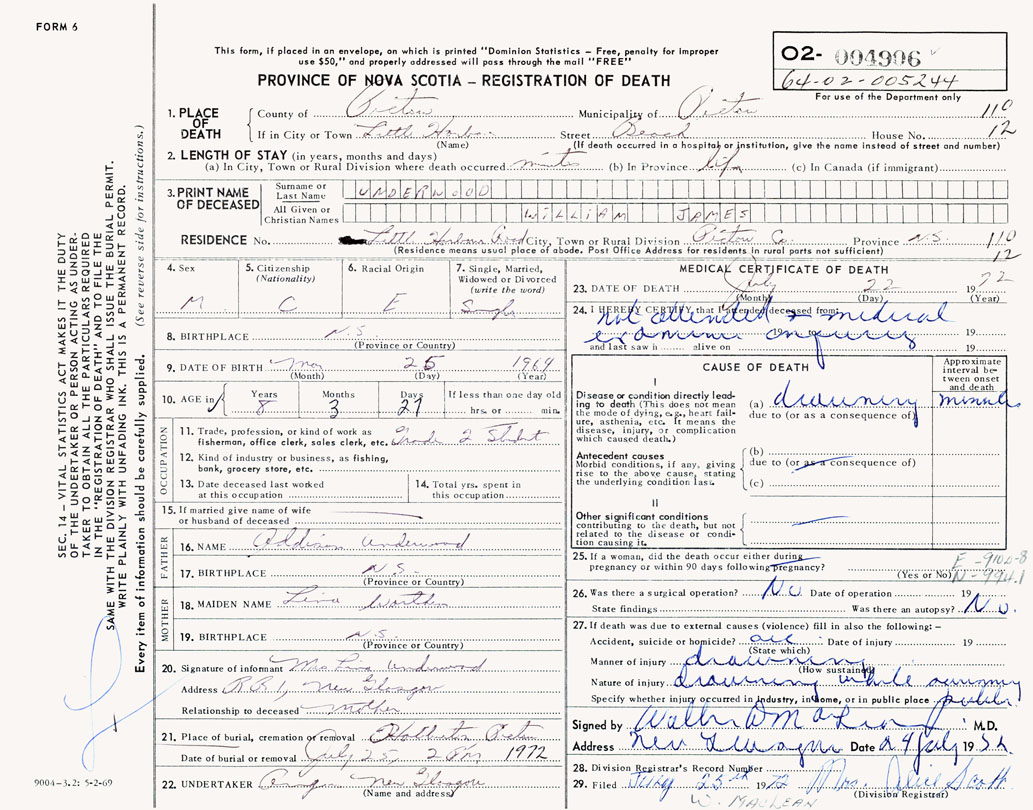 FORM 6
This form, if placed in an envelope, on which is printed "Dominion Statistics – Free, penalty for improper
use $50," and properly addressed will pass through the mail "FREE"
PROVINCE OF NOVA SCOTIA – REGISTRATION OF DEATH
O2- 004906
64-02-005244
For use of the Department only
1. PLACE OF DEATH
County of Pictou Municipality of Pictou 110
If in City or Town Little Harbour Street Beach House No. 12
(Name) (If death occurred in a hospital or institution, give the name instead of street and number)
2. LENGTH OF STAY (in years, months and days)
(a) In City, Town or Rural Division where death occurred minutes (b) In Province life (c) In Canada (if immigrant)
3. PRINT NAME OF DECEASED
Surname or Last Name UNDERWOOD
All Given or Christian Names WILLIAM JAMES
RESIDENCE No. Little Harbour Road City, Town or Rural Division Pictou Co. Province N.S. 110
(Residence means usual place of abode. Post Office Address for residents in rural parts not sufficient) 12
4. Sex
M
5. Citizenship
(Nationality)
C
6. Racial Origin
E
7. Single, Married, Widowed or Divorced
(write the word)
Single
8. BIRTHPLACE N.S.
(Province or Country)
9. DATE OF BIRTH Mar 25 1964
(Month) (Day) (Year)
10. AGE in Years Months Days If less than one day old
8 3 27 hrs. or min.
OCCUPATION
11. Trade, profession, or kind of work as
fisherman, office clerk, sales clerk, etc. Grade 2 Student
12. Kind of industry or business, as fishing,
bank, grocery store, etc.
13. Date deceased last worked
at this occupation
14. Total yrs. spent in
this occupation
15. If married give name of wife
or husband of deceased
FATHER
16. NAME Addison Underwood
17. BIRTHPLACE N.S.
(Province or Country)
MOTHER
18. MAIDEN NAME
19. BIRTHPLACE N.S.
(Province or Country)
20. Signature of informant Mrs Underwood
Address R.R. 1, New Glasgow
Relationship to deceased Mother
21. Place of burial, cremation or removal Pictou
Date of burial or removal July 25, 2 P.M. 1972
22. UNDERTAKER New Glasgow
(Name and address)
MEDICAL CERTIFICATE OF DEATH
23. DATE OF DEATH July 22 1972
(Month) (Day) (Year)
24. I HEREBY CERTIFY, that I attended deceased from:
not attended medical
examiner inquiry 19
and last saw h alive on 19
CAUSE OF DEATH
Approximate interval between onset and death
I
Disease or condition directly leading to death (This does not mean the mode of dying, e.g., heart failure, asthenia, etc. It means the disease, injury, or complication which caused death.)
(a) drowning minutes
due to (or as a consequence of)
Antecedent causes
Morbid conditions, if any, giving rise to the above cause, stating the underlying condition last.
(b)
due to (or as a consequence of)
(c)
II
Other significant conditions
contributing to the death, but not related to the disease or condition causing it.
25. If a woman, did the death occur either during
pregnancy or within 90 days following pregnancy?
(Yes or No)
E -910.0-8
N-994.1
26. Was there a surgical operation? No Date of operation 19
State findings Was there an autopsy? No.
27. If death was due to external causes (violence) fill in also the following: –
Accident, suicide or homicide? acc Date of injury 19
(State which)
Manner of injury drowning
(How sustained)
Nature of injury drowning while swimming
Specify whether injury occurred in Industry, in home, or in public place public
Signed by M.D.
Address New Glasgow Date 24 July 19
28. Division Registrar's Record Number
29. Filed July 25th 1972 Mrs. Alice Scott
(Division Registrar)
W. MACLEAN
SEC. 14 – VITAL STATISTICS ACT MAKES IT THE DUTY
OF THE UNDERTAKER OR PERSON ACTING AS UNDER-
TAKER TO OBTAIN ALL THE PARTICULARS REQUIRED
IN THE "REGISTRATION OF DEATH" AND TO FILE THE
SAME WITH THE DIVISION REGISTRAR WHO SHALL ISSUE THE BURIAL PERMIT.
WRITE PLAINLY WITH UNFADING INK. THIS IS A PERMANENT RECORD.
Every item of information should be carefully supplied. (See reverse side for instructions.)
9004-3.2: 5-2-69